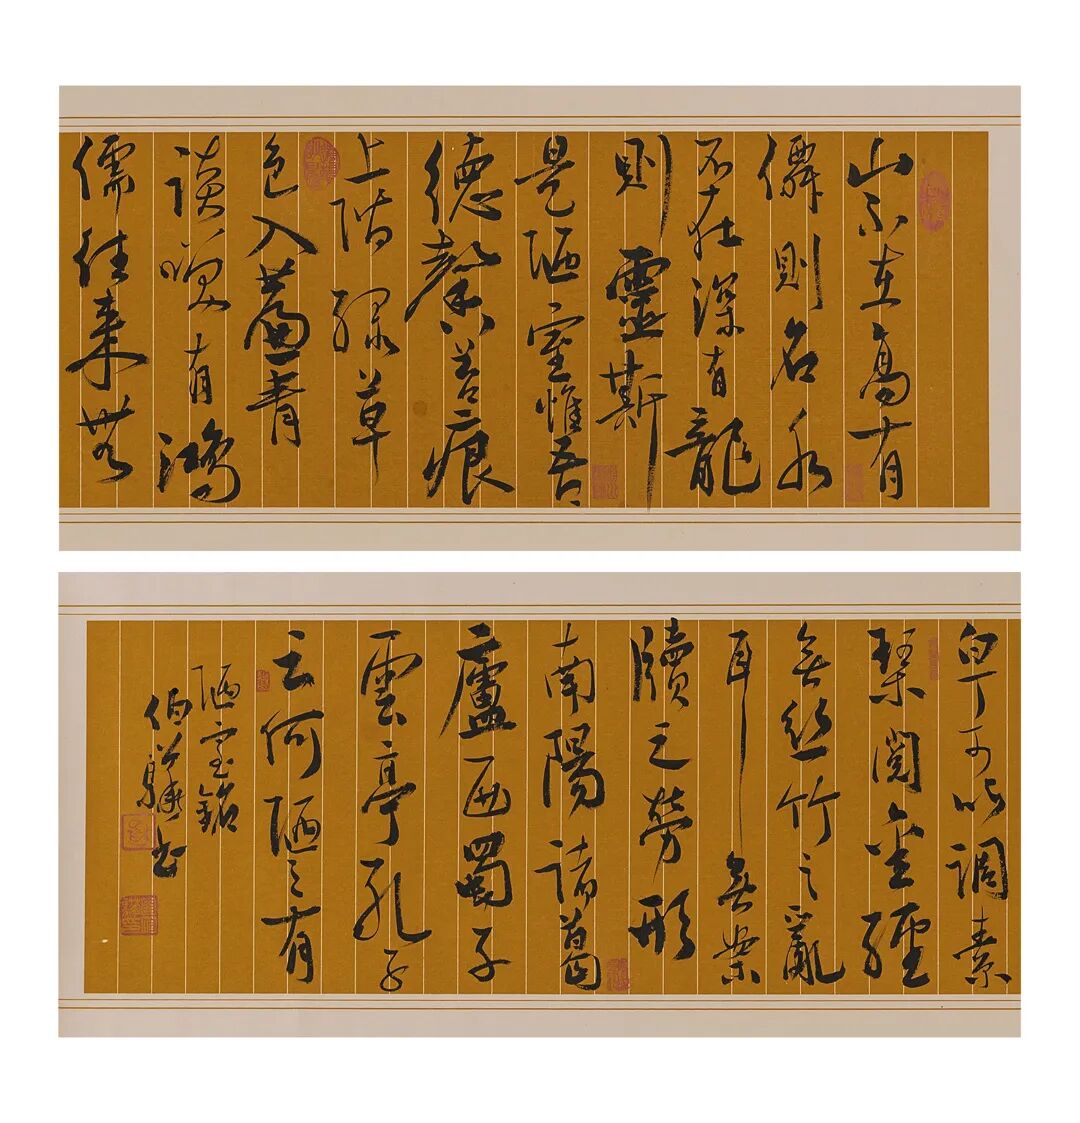 山不在高有
僊則名水
不在深有龍
則靈斯
是陋室惟吾
德馨苔痕
上階綠草
色入簾青
談笑有鴻
儒往來無
白丁可以調素
琴閱金經
無絲竹之亂
耳無案
牘之勞形
南陽諸葛
廬西蜀子
雲亭孔子
云何陋之有
陋室銘
伯 書